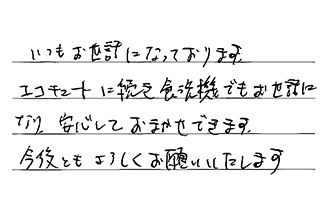 いつもお世話になっております。
エコキュートに続き食洗機でもお世話に
なり、安心しておまかせできます。
今後ともよろしくお願いいたします